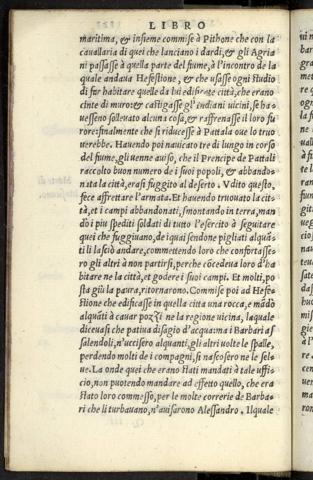 LIBRO
maritima, & insieme commise à Pithone che con la
cauallaria di quei che lanciano i dardi, & gli Agria
ni passasse à quella parte del fiume, à l'incontro de la
quale andaua Hefestione, & che usasse ogni studio
di far habitare quelle da lui edificate città, che erano
cinte di muro: & castigasse gl'indiani uicini, se ha
uesseno solleuato alcuna cosa, & raffrenasse il loro fu
rore: finalmente che si riducesse à Pattala oue lo truo
uerebbe. Hauendo poi nauicato tre dì lungo in corso
del fiume, gli uenne auiso, che il Prencipe de Pattali
raccolto buon numero de i suoi popoli, & abbando
nata la città, era si fuggito al deserto. Vdito questo,
fece affrettare l'armata. Et hauendo truouato la cit
tà, et i campi abbandonati, smontando in terra, man
dò i piu spediti soldati di tutto l'esercito à seguitare
quei che fuggiuano, de i quai sendone pigliati alquā
ti li lasciò andare, commettendo loro che confortasse
ro gli altri à non partirsi, perche cōcedeua loro d'ha
bitare ne la città, et godere i suoi campi. Et molti, po
sta giù la paura, ritornarono. Commise poi ad Hefe
stione che edificasse in quella città una rocca, e mādò
alquāti à cauar pozzi ne la regione uicina, la quale
diceuasi che patiua disagio d'acqua: ma i Barbari as
salendoli, n'uccisero alquanti, gli altri uolte le spalle,
perdendo molti de i compagni, si nascosero ne le sel-
ue. La onde quei che erano stati mandati à tale uffi-
cio, non puotendo mandare ad effetto quello, che era
stato loro commesso, per le molte correrie de Barba-
ri che li turbauano, n'auisarono Alessandro. Il quale